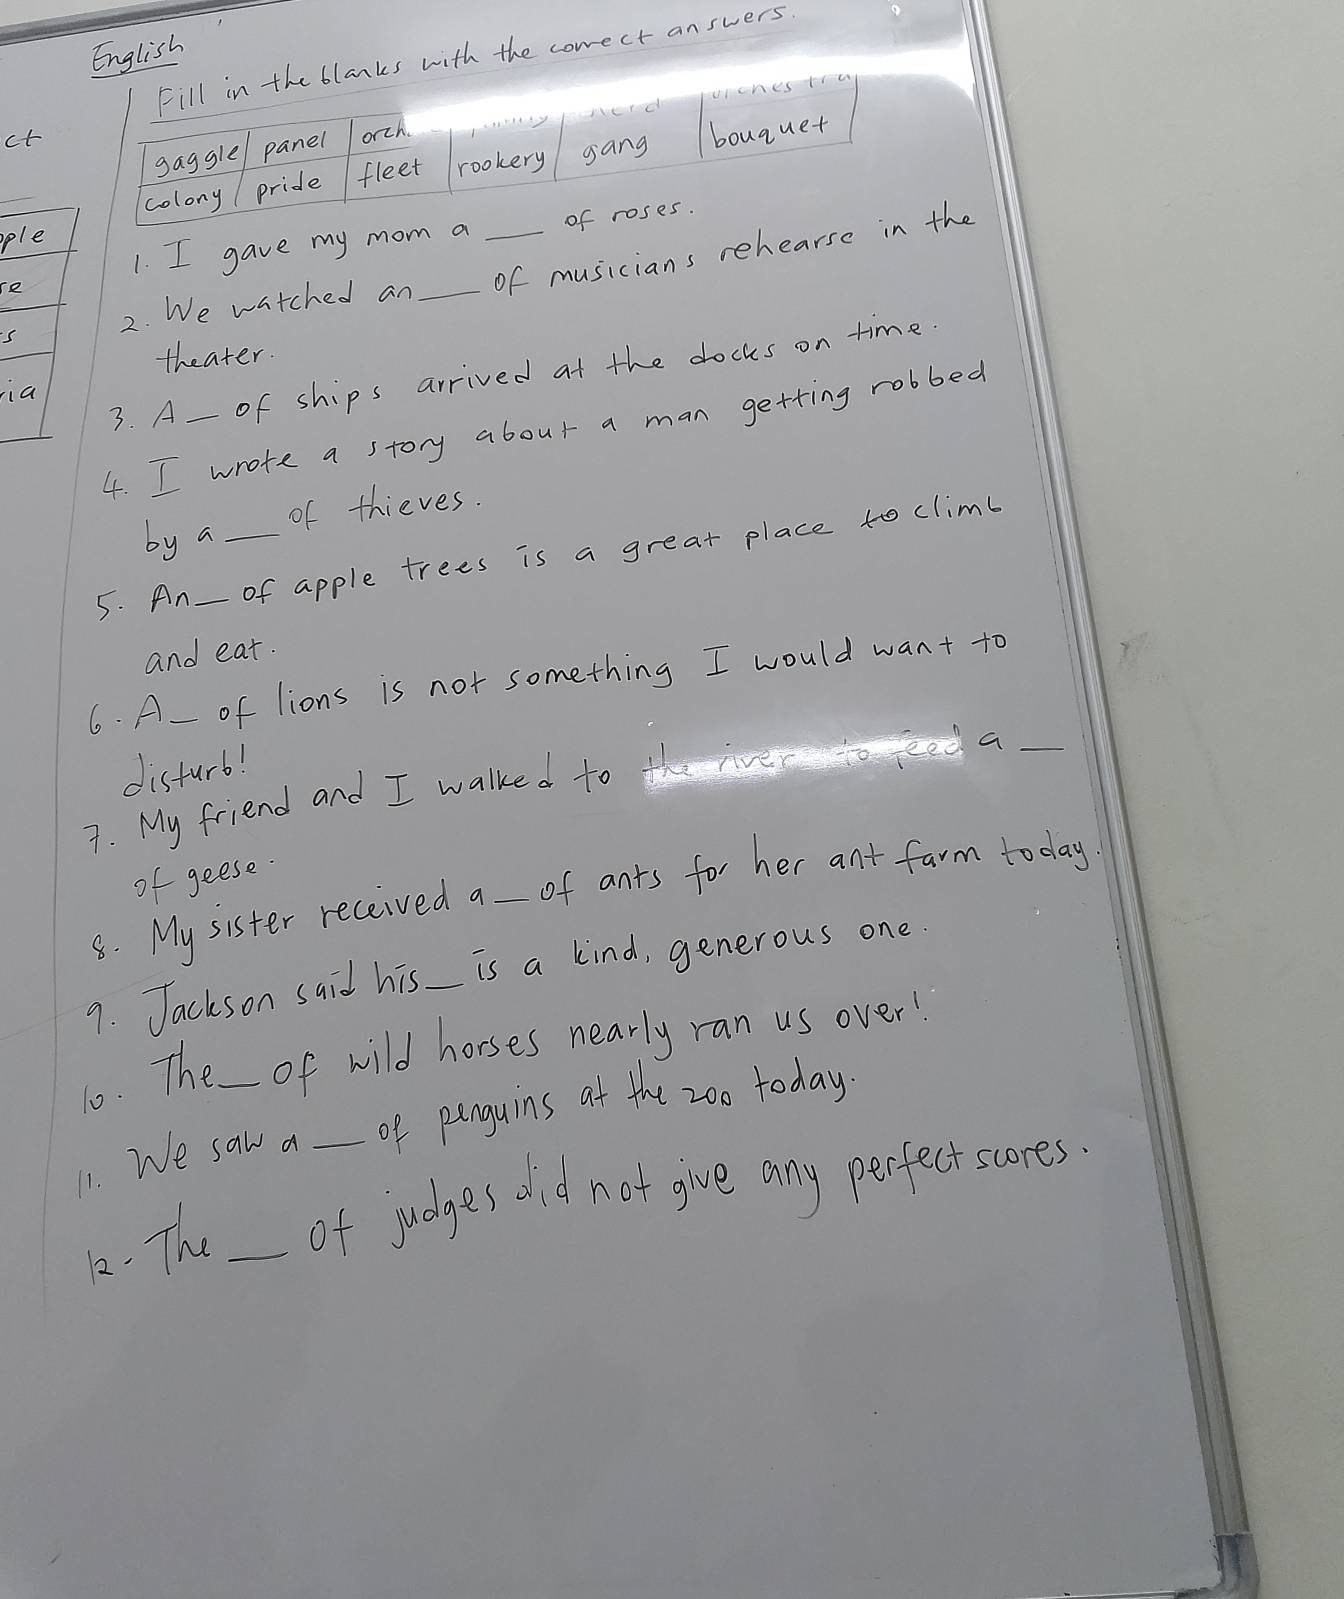 English
Fill in the blanks with the correct answers.
ct
ople
se
s
ria
gaggle panel orch herd orchestra
colony pride fleet rookery gang bouquet
1. I gave my mom a __ of roses.
2. We watched an __ of musicians rehearse in the
theater.
3. A _ of ships arrived at the docks on time.
4. I wrote a story about a man getting robbed
by a __ of thieves.
5. An _ of apple trees is a great place to climb
and eat.
6. A _ of lions is not something I would want to
disturb!
7. My friend and I walked to the river to feed a _
of geese.
8. My sister received a _ of ants for her ant farm today.
9. Jackson said his _ is a kind, generous one.
10. The _ of wild horses nearly ran us over!
11. We saw a __ of penguins at the zoo today.
12. The __ of judges did not give any perfect scores.